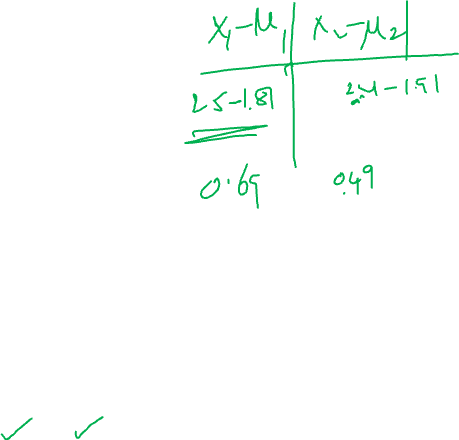 X₁-μ₁ x₂-μ₂
2.5-1.81 2.4-1.91
0.69 0.49